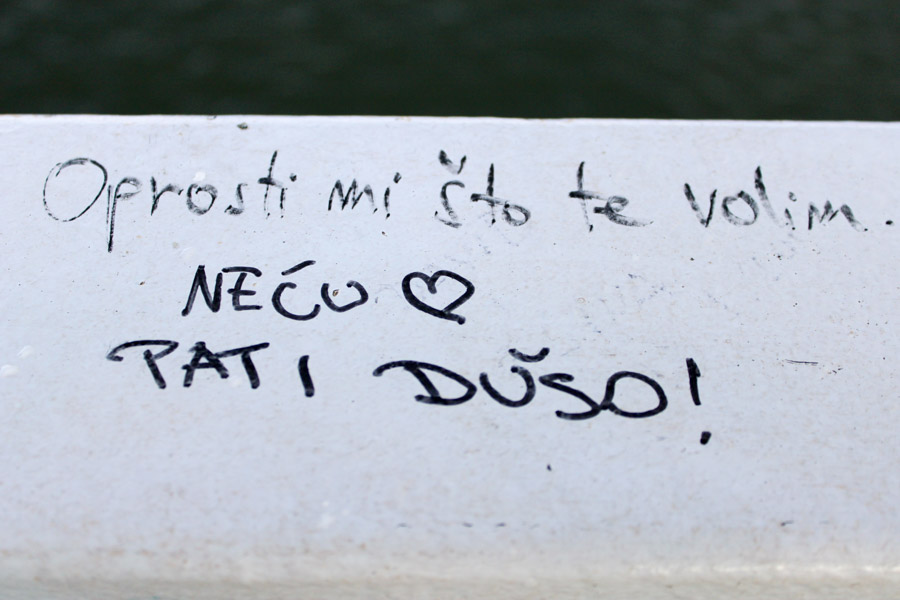 Oprosti mi što te volim.
NEĆU ♡
PATI DUŠO!